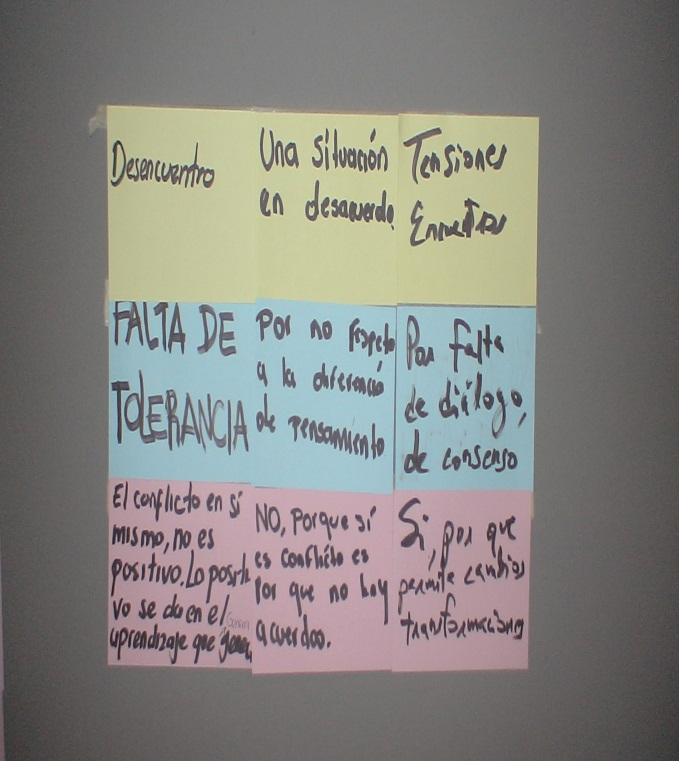 Desencuentro
Una situación
en desacuerdo.
Tensiones
FALTA DE
TOLERANCIA
Por no respeto
a la diferencia
de pensamiento
Por falta
de diálogo,
de consenso
El conflicto en sí
mismo, no es
positivo. Lo positi
vo se da en el
aprendizaje que genera
NO, porque sí
es conflicto es
por que no hay
acuerdos.
Si, por que
permite cambios
transformaciones